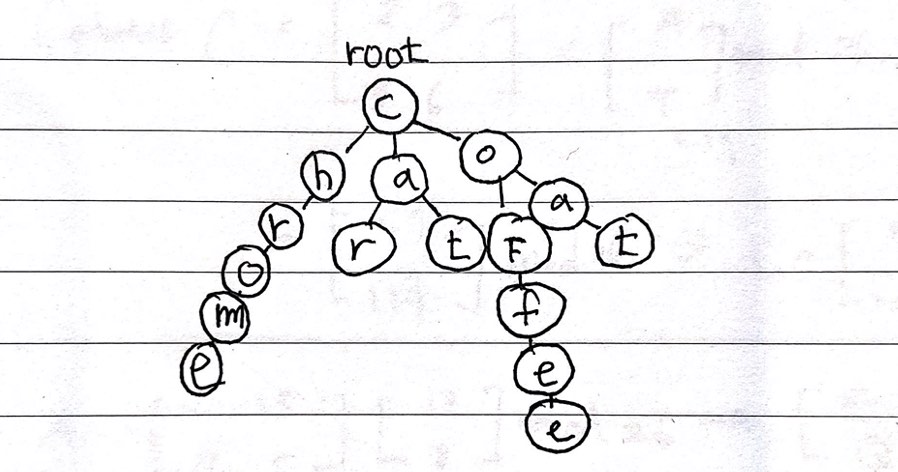 root
C
h a o
r r t F a t
o
m f
e e
e